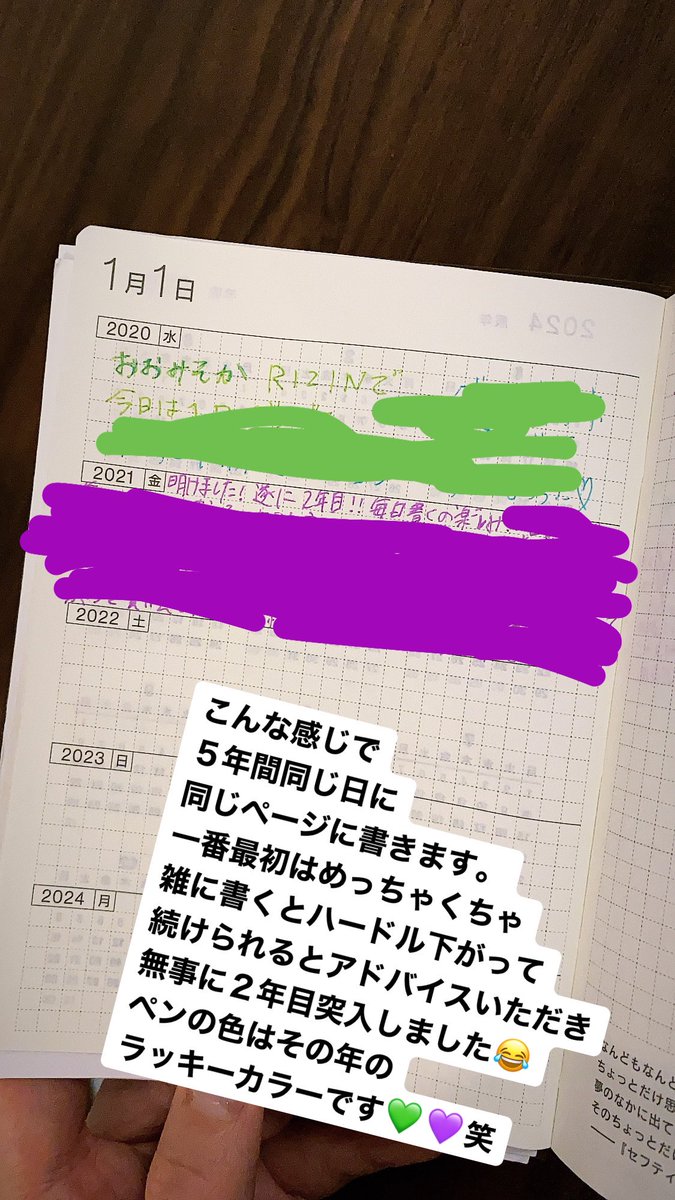 1月1日
2024
2020 水
おおみそか RIZINで
今日は1
2021 金 明けました！遂に2年目！！毎日書くの楽しみ！
2022 土
2023 日
2024 月
こんな感じで
５年間同じ日に
同じページに書きます。
一番最初はめっちゃくちゃ
雑に書くとハードル下がって
続けられるとアドバイスいただき
無事に２年目突入しました😂
ペンの色はその年の
ラッキーカラーです💚💜笑
なんどもなんど
ちょっとだけ思
夢のなかに出て
そのちょっとだけ
──『セフティ